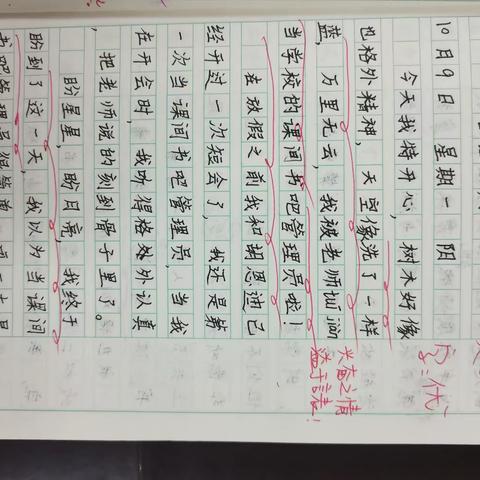 10月9日 星期一 阴
今天我特开心,树木好像
也格外精神,天空像洗了一样
蓝,万里无云,我被老师
当学校的课间书吧管理员啦!
在放假之前我和胡思迪已
经开过一次短会了,我还是第
一次当课间书吧管理员,当我
在开会时,我听得格外认真
,把老师说的刻到骨子里了。
盼星星,盼月亮,我终于
盼到了这一天,我以为当课间
书吧管理员很简单,
兴奋之情
溢于言表!
优